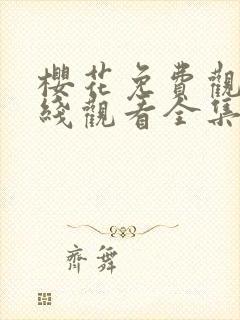 櫻花免費觀
綫觀看全集
齊舞